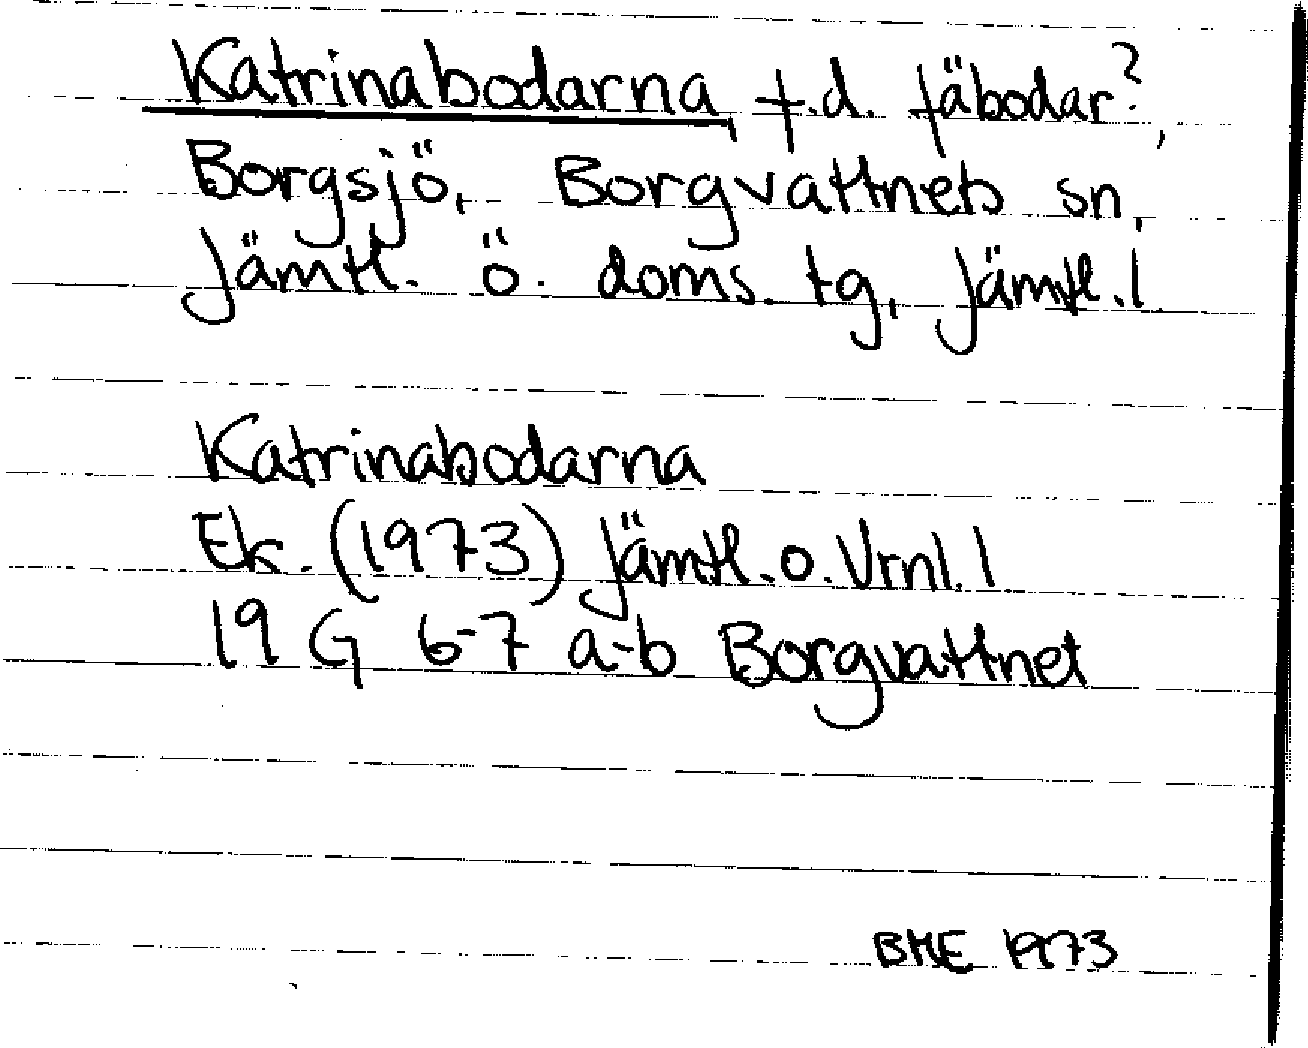 Katrinabodarna, f.d. fäbodar?,
Borgsjö, Borgvattnets sn,
Jämtl. ö. doms. tg, Jämtl. l.
Katrinabodarna
Ek. (1973) Jämtl. o. Vrnl. l
19 G 6-7 a-b Borgvattnet
BME 1973